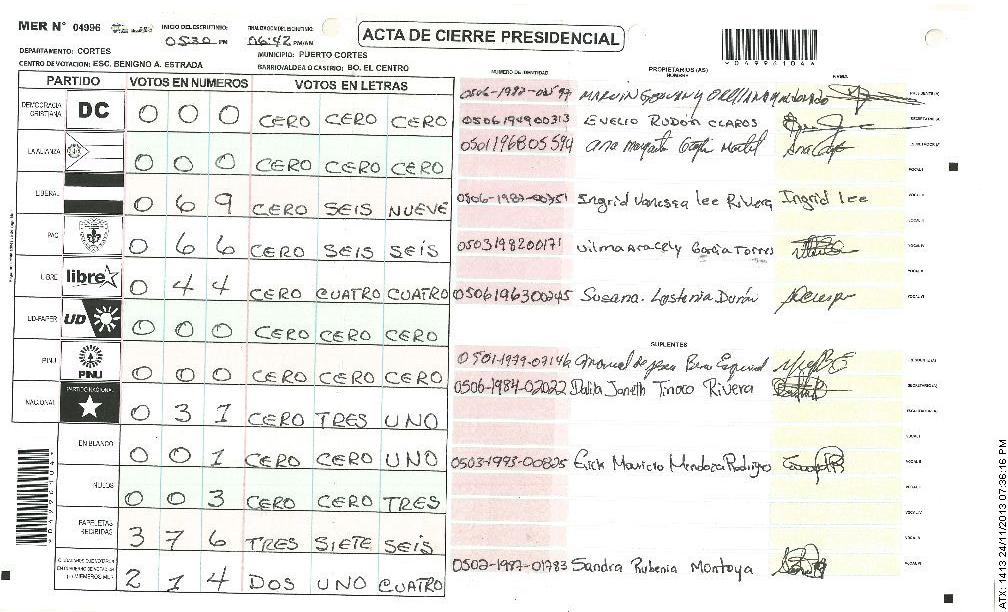 MER N° 04996
INICIO DEL ESCRUTINIO: 0530 PM
FINALIZACION DEL ESCRUTINIO: 06:42 PM/AM
ACTA DE CIERRE PRESIDENCIAL
DEPARTAMENTO: CORTES
MUNICIPIO: PUERTO CORTES
CENTRO DE VOTACION: ESC. BENIGNO A. ESTRADA
BARRIO/ALDEA O CASTRIO: BO. EL CENTRO
PARTIDO VOTOS EN NUMEROS VOTOS EN LETRAS
NUMERO DE IDENTIDAD PROPIETARIOS (AS) NOMBRE FIRMA
DEMOCRACIA CRISTIANA DC 0 0 0 CERO CERO CERO
LA ALIANZA 0 0 0 CERO CERO CERO
LIBERAL 0 6 9 CERO SEIS NUEVE
PAC 0 6 6 CERO SEIS SEIS
LIBRE libre 0 4 4 CERO CUATRO CUATRO
UD-FAPER UD 0 0 0 CERO CERO CERO
PINU PINU 0 0 0 CERO CERO CERO
NACIONAL PARTIDO NACIONAL 0 3 1 CERO TRES UNO
EN BLANCO 0 0 1 CERO CERO UNO
NULOS 0 0 3 CERO CERO TRES
PAPELETAS RECIBIDAS 3 7 6 TRES SIETE SEIS
2 1 4 DOS UNO CUATRO
0506194900313 EVELIO RUDON CLAROS
0501196805594 Ana
Ingrid Vanessa Lee Rivera Ingrid Lee
0503198200171 Vilma Aracely Garcia Torres
0506196300245 Susana Lastenia Durón
SUPLENTES
0501-1979-07146
0506-1984-02022 Dalila Janeth Tinoco Rivera
0503-1993-00825 Erick Mauricio Mendoza Rodrigo
0502-1987-01783 Sandra Rubenia Montoya
ATX: 1413 24/11/2013 07:36:16 PM